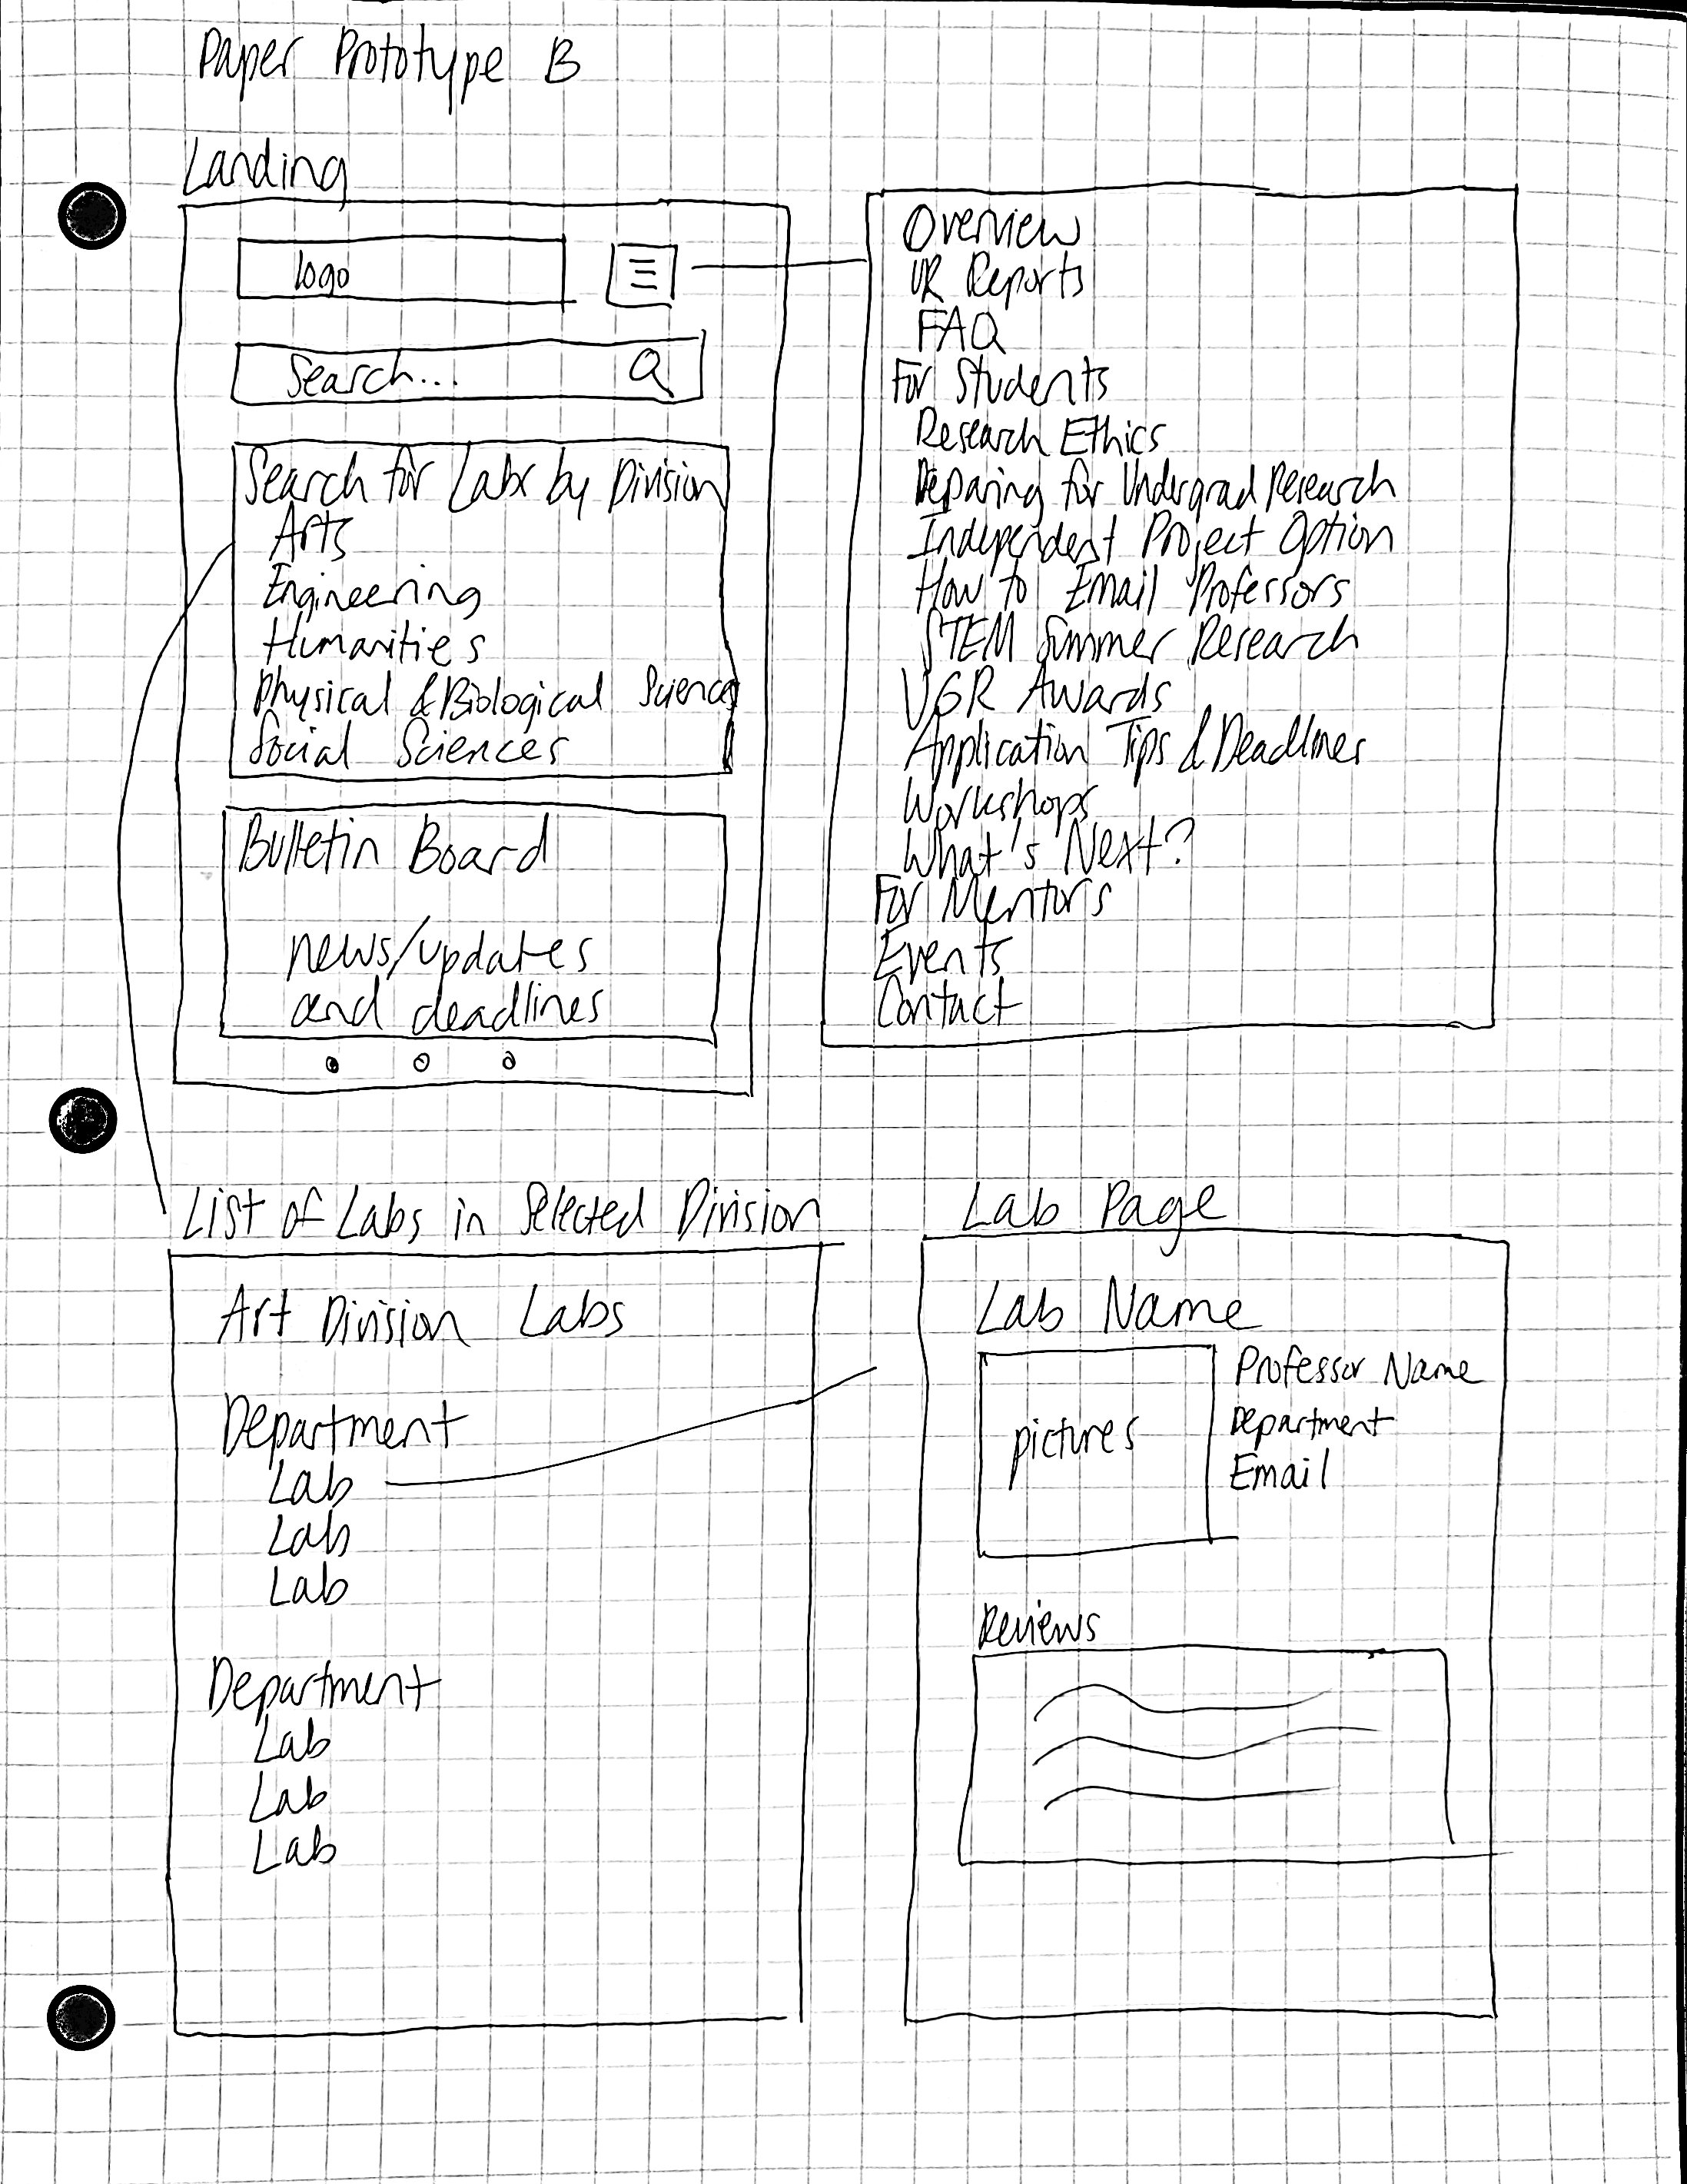 Paper Prototype B
Landing
logo
Search...
Search for Labs by Division
Arts
Engineering
Humanities
Physical & Biological Sciences
Social Sciences
Bulletin Board
news/updates
and deadlines
Overview
UR Reports
FAQ
For Students
Research Ethics
Preparing for Undergrad Research
Independent Project Option
How to Email Professors
STEM Summer Research
UGR Awards
Application Tips & Deadlines
Workshops
What's Next?
For Mentors
Events
Contact
List of Labs in Selected Division
Art Division Labs
Department
Lab
Lab
Lab
Department
Lab
Lab
Lab
Lab Page
Lab Name
pictures
Professor Name
Department
Email
Reviews